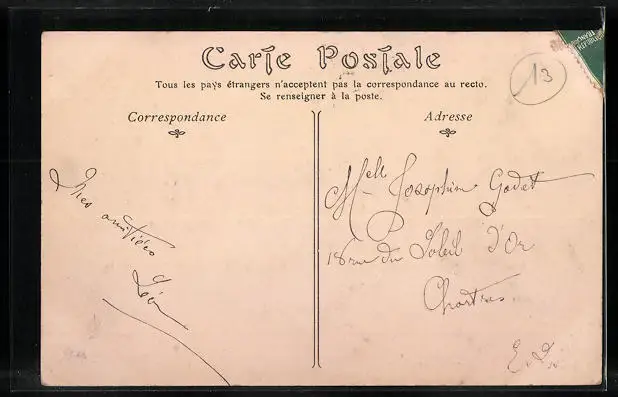 Carte Postale
Tous les pays étrangers n'acceptent pas la correspondance au recto.
Se renseigner à la poste.
Correspondance
Adresse
13
Mes amitiés
Léon
Melle Josephine Godet
18 rue du Soleil d'Or
Chartres
E. V.